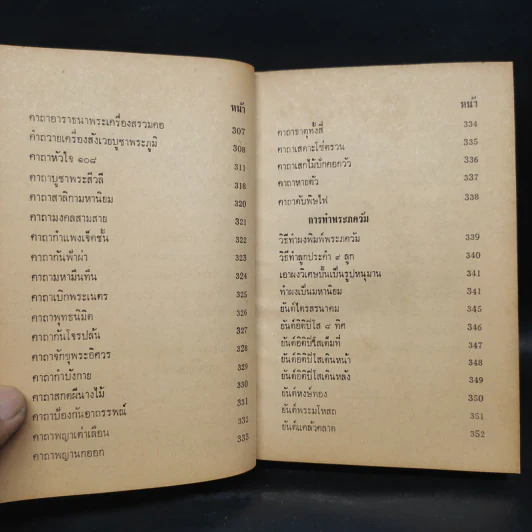 หน้า
คาถาอาราธนาพระเครื่องสรวมคอ 307
คำถวายเครื่องสังเวยบูชาพระภูมิ 308
คาถาหัวใจ ๑๐๘ 311
คาถาบูชาพระสีวลี 318
คาถาสาลิกามหานิยม 320
คาถามงคลสามสาย 321
คาถากำแพงเจ็ดชั้น 322
คาถากันฟ้าผ่า 323
คาถามหามึนทึน 324
คาถาเบิกพระเนตร 325
คาถาพุทธนิมิต 326
คาถากันโจรปล้น 327
คาถาจักขุพระอิศวร 328
คาถากำบังกาย 329
คาถาสกดผีนางไม้ 330
คาถาป้องกันอาถรรพณ์ 331
คาถาพญาเต่าเลือน 332
คาถาพญานกออก 333
หน้า
คาถาธาตุทั้งสี่ 334
คาถาเสดาะโซ่ตรวน 335
คาถาเสกไม้ปักคอกวัว 336
คาถาหายตัว 337
คาถาดับพิษไฟ 338
การทำพระภควัม
วิธีทำผงพิมพ์พระภควัม 339
วิธีทำลูกประคำ ๙ ลูก 340
เอาผงวิเศษปั้นเป็นรูปหนุมาน 341
ทำผงเป็นมหานิยม 341
ยันต์ไตรสรนาคม 345
ยันต์อิติปิโส ๘ ทิศ 346
ยันต์อิติปิโสเต็มที่ 347
ยันต์อิติปิโสเดินหน้า 348
ยันต์อิติปิโสเดินหลัง 349
ยันต์หงษ์ทอง 350
ยันต์พระมโหสถ 351
ยันต์แคล้วคลาด 352